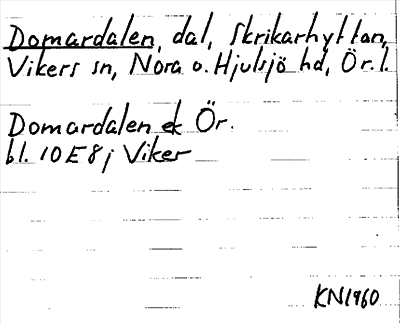 Domardalen, dal, Skrikarhyttan,
Vikers sn, Nora o. Hjulsjö hd, Ör. l.
Domardalen ek Ör.
bl. 10E8j Viker
KN1960